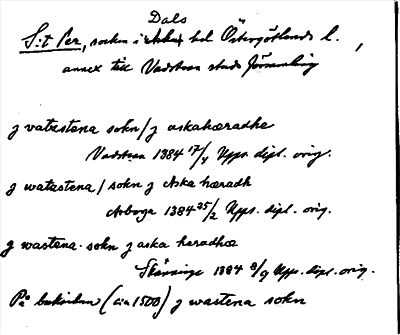 Dals
S:t Per, socken i hd Östergötlands l.,
annex till Vadstena stads församling
j vatzstena sokn / j askahæradhe
Vadstena 1384 17/4 Upps. dipl. orig.
j watzstena / sokn j Aska hæradh
Arboga 1384 25/2 Upps. dipl. orig.
j wastena sokn j aska hæradhæ
Skänninge 1384 8/9 Upps. dipl. orig.
På baksidan (ca 1500) j wastena sokn